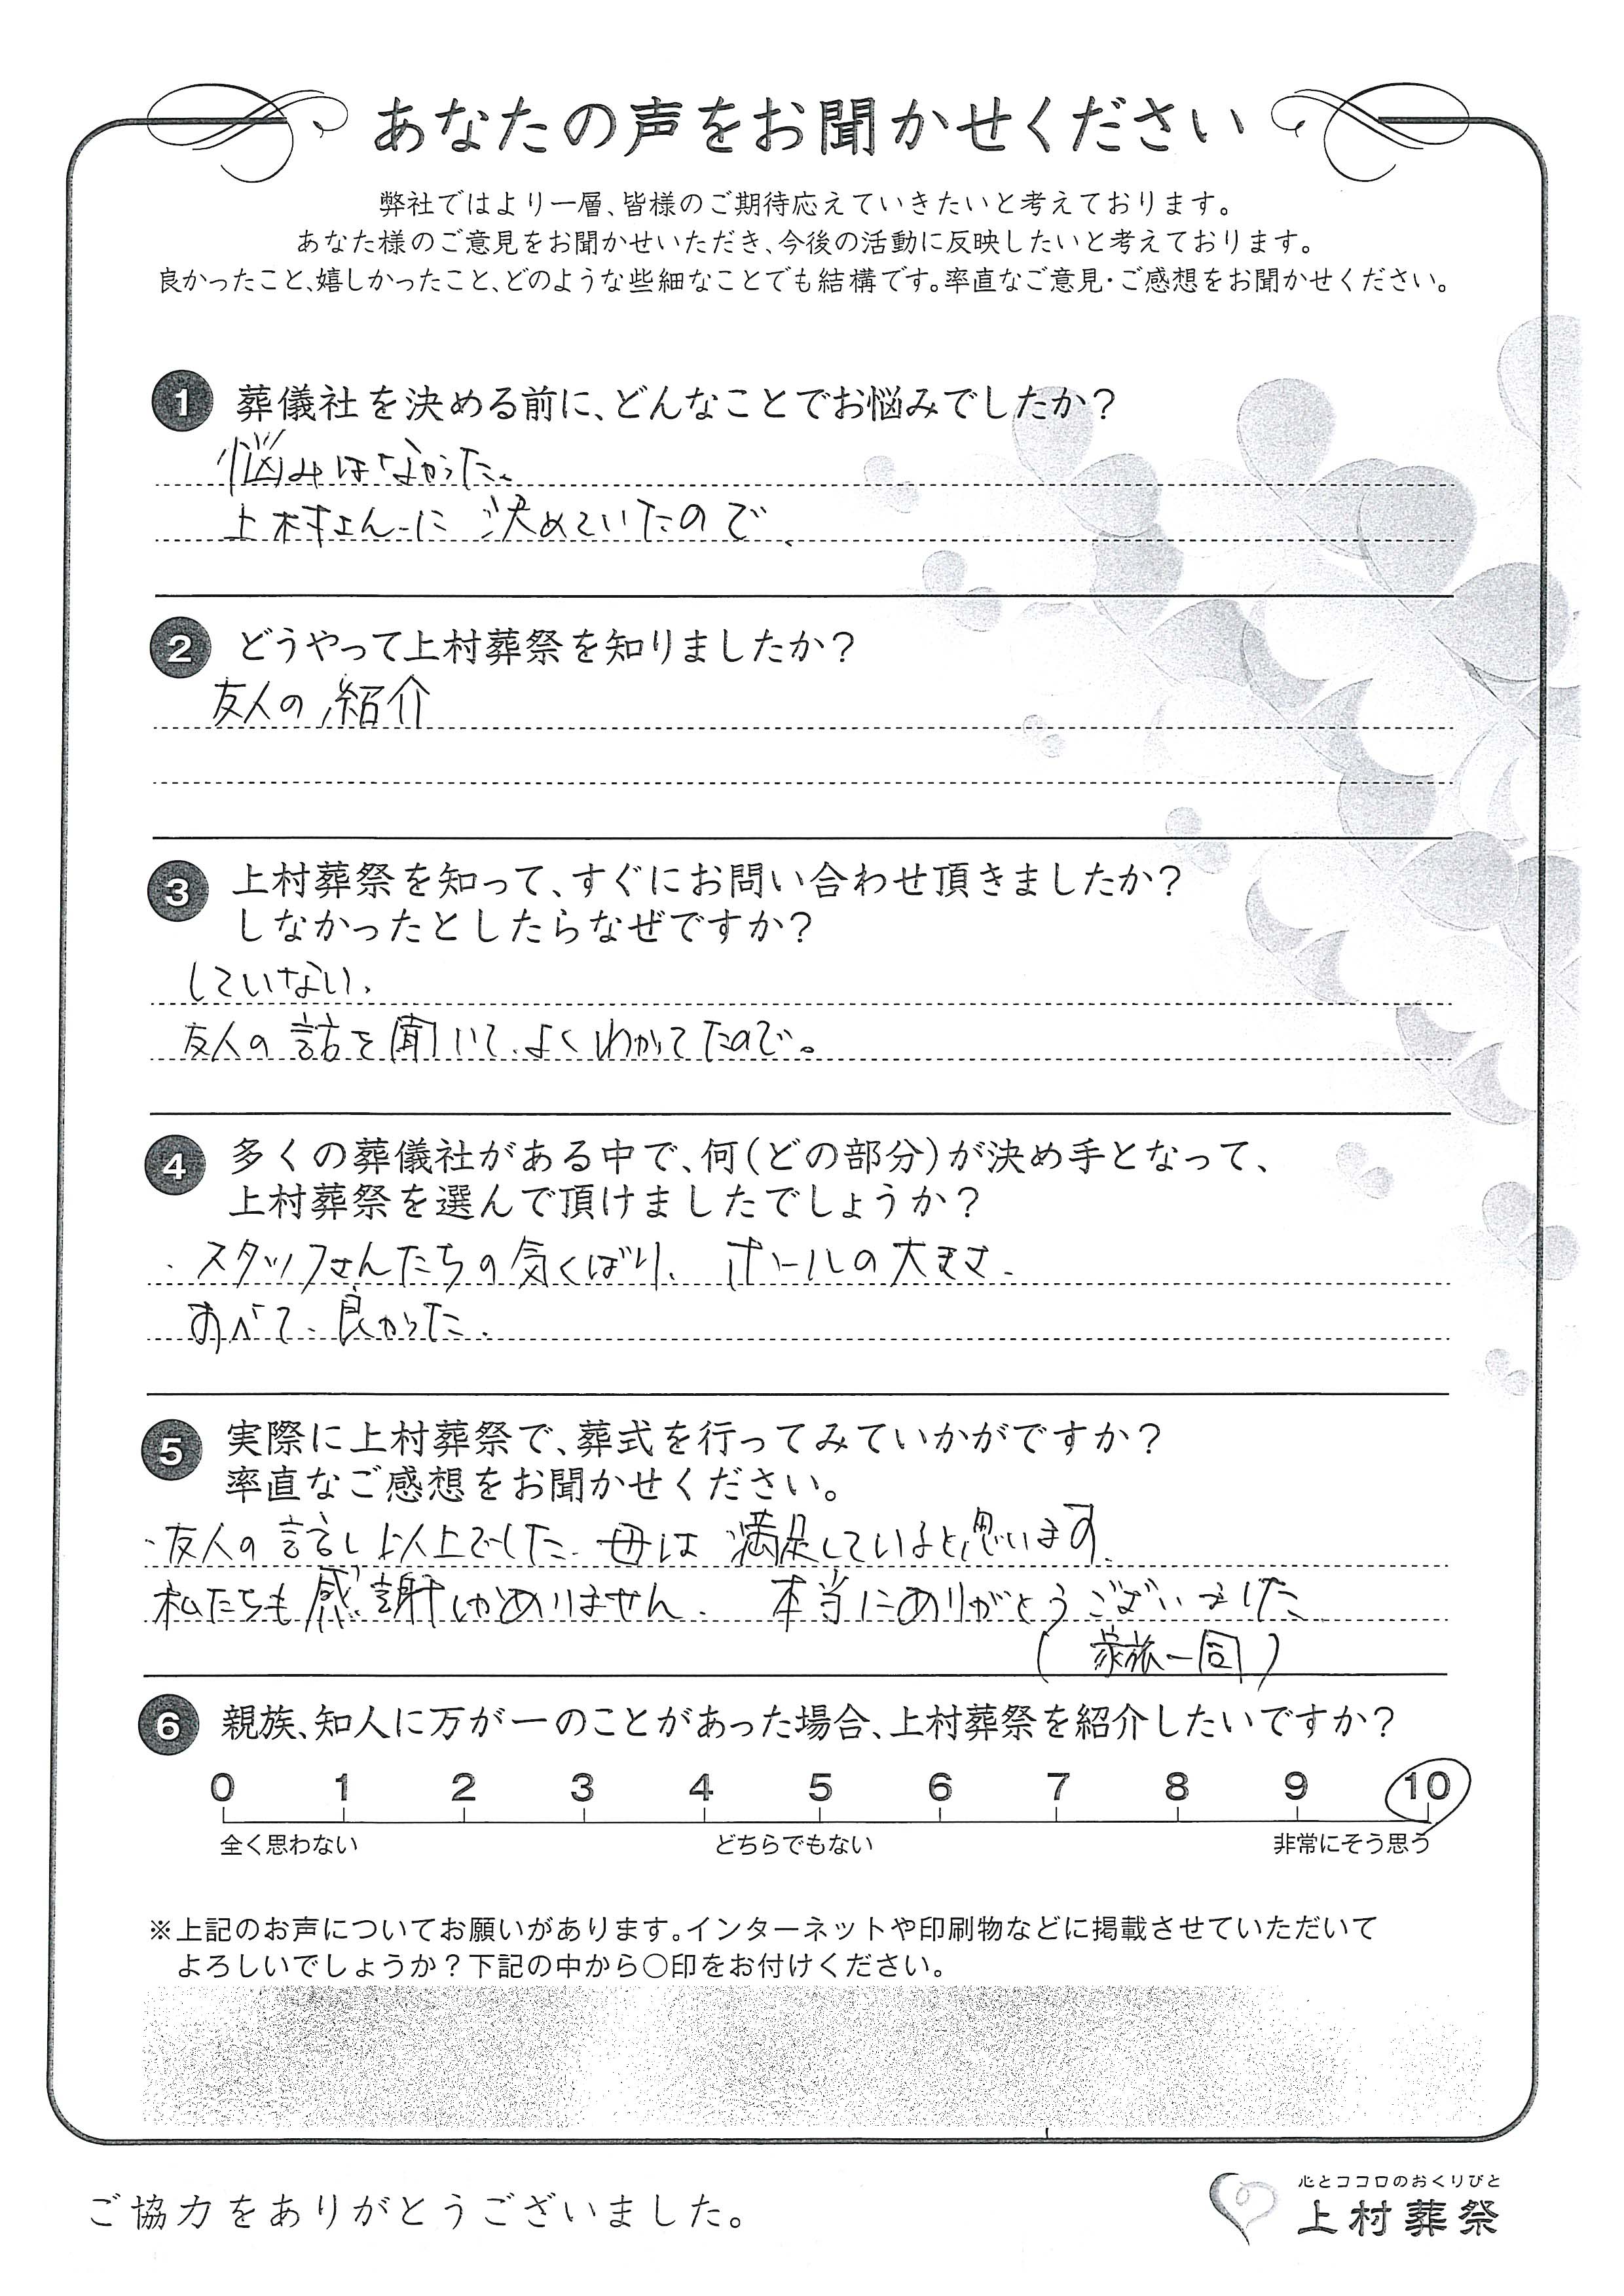 あなたの声をお聞かせください
弊社ではより一層、皆様のご期待応えていきたいと考えております。
あなた様のご意見をお聞かせいただき、今後の活動に反映したいと考えております。
良かったこと、嬉しかったこと、どのような些細なことでも結構です。率直なご意見・ご感想をお聞かせください。
1 葬儀社を決める前に、どんなことでお悩みでしたか?
悩みはなかった。
上村さんに決めていたので、
2 どうやって上村葬祭を知りましたか?
友人の紹介
3 上村葬祭を知って、すぐにお問い合わせ頂きましたか?
しなかったとしたらなぜですか?
していない。
友人の話を聞いて、よくわかってたので。
4 多くの葬儀社がある中で、何(どの部分)が決め手となって、
上村葬祭を選んで頂けましたでしょうか?
・スタッフさんたちの気くばり、ホールの大きさ、
すべて、良かった。
5 実際に上村葬祭で、葬式を行ってみていかがですか?
率直なご感想をお聞かせください。
・友人の話し以上でした。母は満足していると思います。
私たちも感謝しかありません。本当にありがとうございました
(家族一同)
6 親族、知人に万が一のことがあった場合、上村葬祭を紹介したいですか?
0 1 2 3 4 5 6 7 8 9 10
全く思わない どちらでもない 非常にそう思う
※上記のお声についてお願いがあります。インターネットや印刷物などに掲載させていただいて
よろしいでしょうか?下記の中から○印をお付けください。
ご協力をありがとうございました。
心とココロのおくりびと
上村葬祭